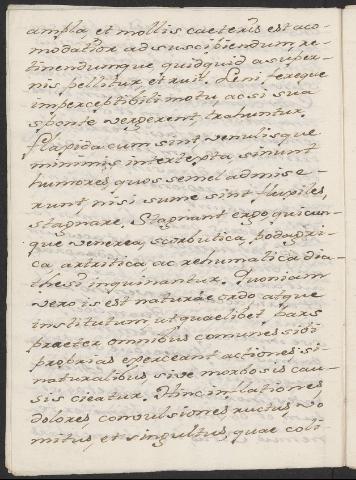 ampla, et mollis caeteris est aco-
modatior ad suscipiendum, re-
tinendumque quidquid a super-
nis pellitur, et ruit. Leni, fereque
imperceptibili motu, ac si sua
sponte vergerent, trahuntur.
Flapida cum sint, venulisque
minimis intertepta, sinunt
humores, quos semel admise-
runt, nisi sume sint flupiles,
stagnare. Stagnant ergo quicun-
que venerea, scorbutica, podagri-
ca, artritica ac rehumatica dia-
thesi inquinantur. Quoniam
vero is est naturae ordo atque
institutum ut quaelibet pars
praeter omnibus comunes sibi
proprias exerceant actiones si
naturalibus, sive morbosis cau-
sis cieatur. Hinc inflationes
dolores, convulsiones, ructus, vo-
mitus, et singultus, quae coli-